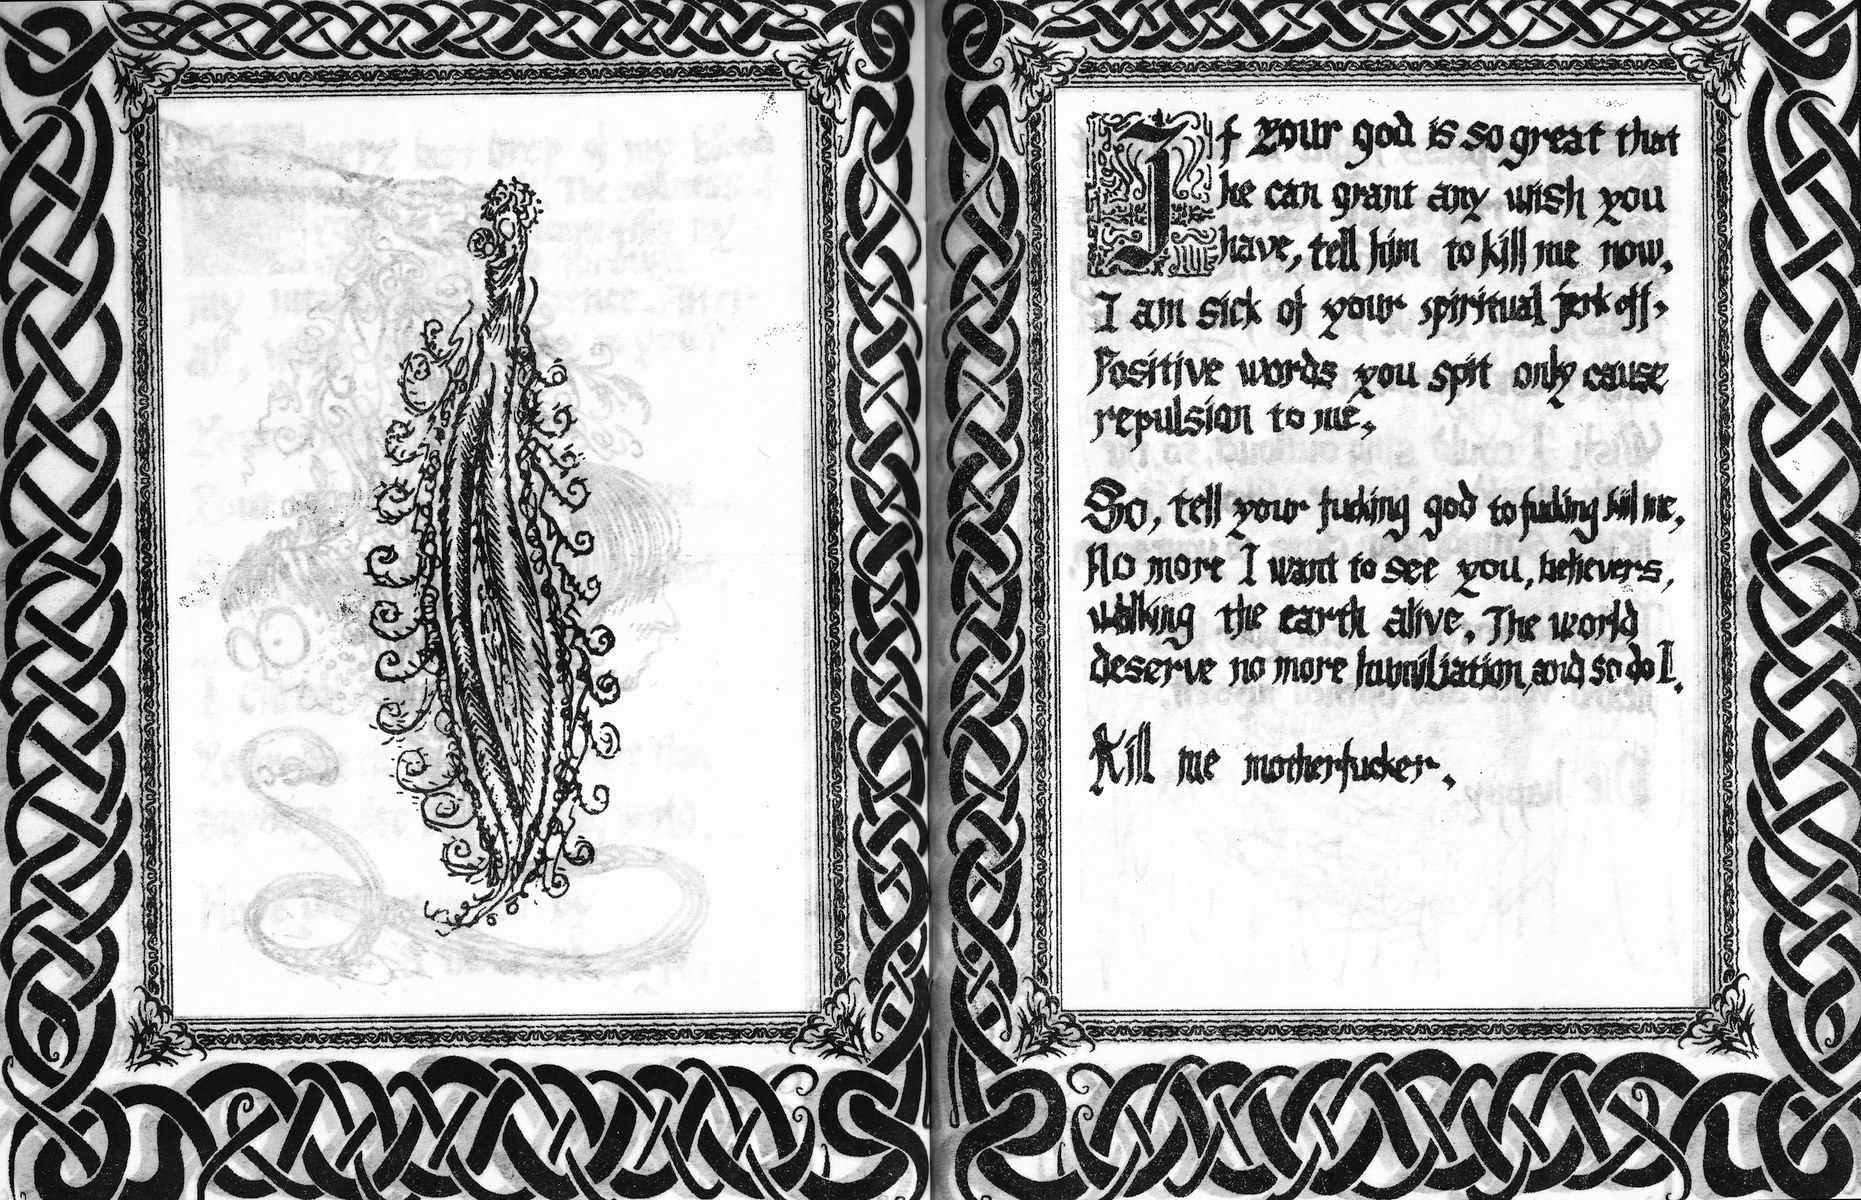 If your god is so great that
he can grant any wish you
have, tell him to kill me now.
I am sick of your spiritual jerk off,
Positive words you spit only cause
repulsion to me.
So, tell your fucking god to fucking kill me,
No more I want to see you, believers,
walking the earth alive. The world
deserve no more humiliation, and so do I.
Kill me motherfucker.